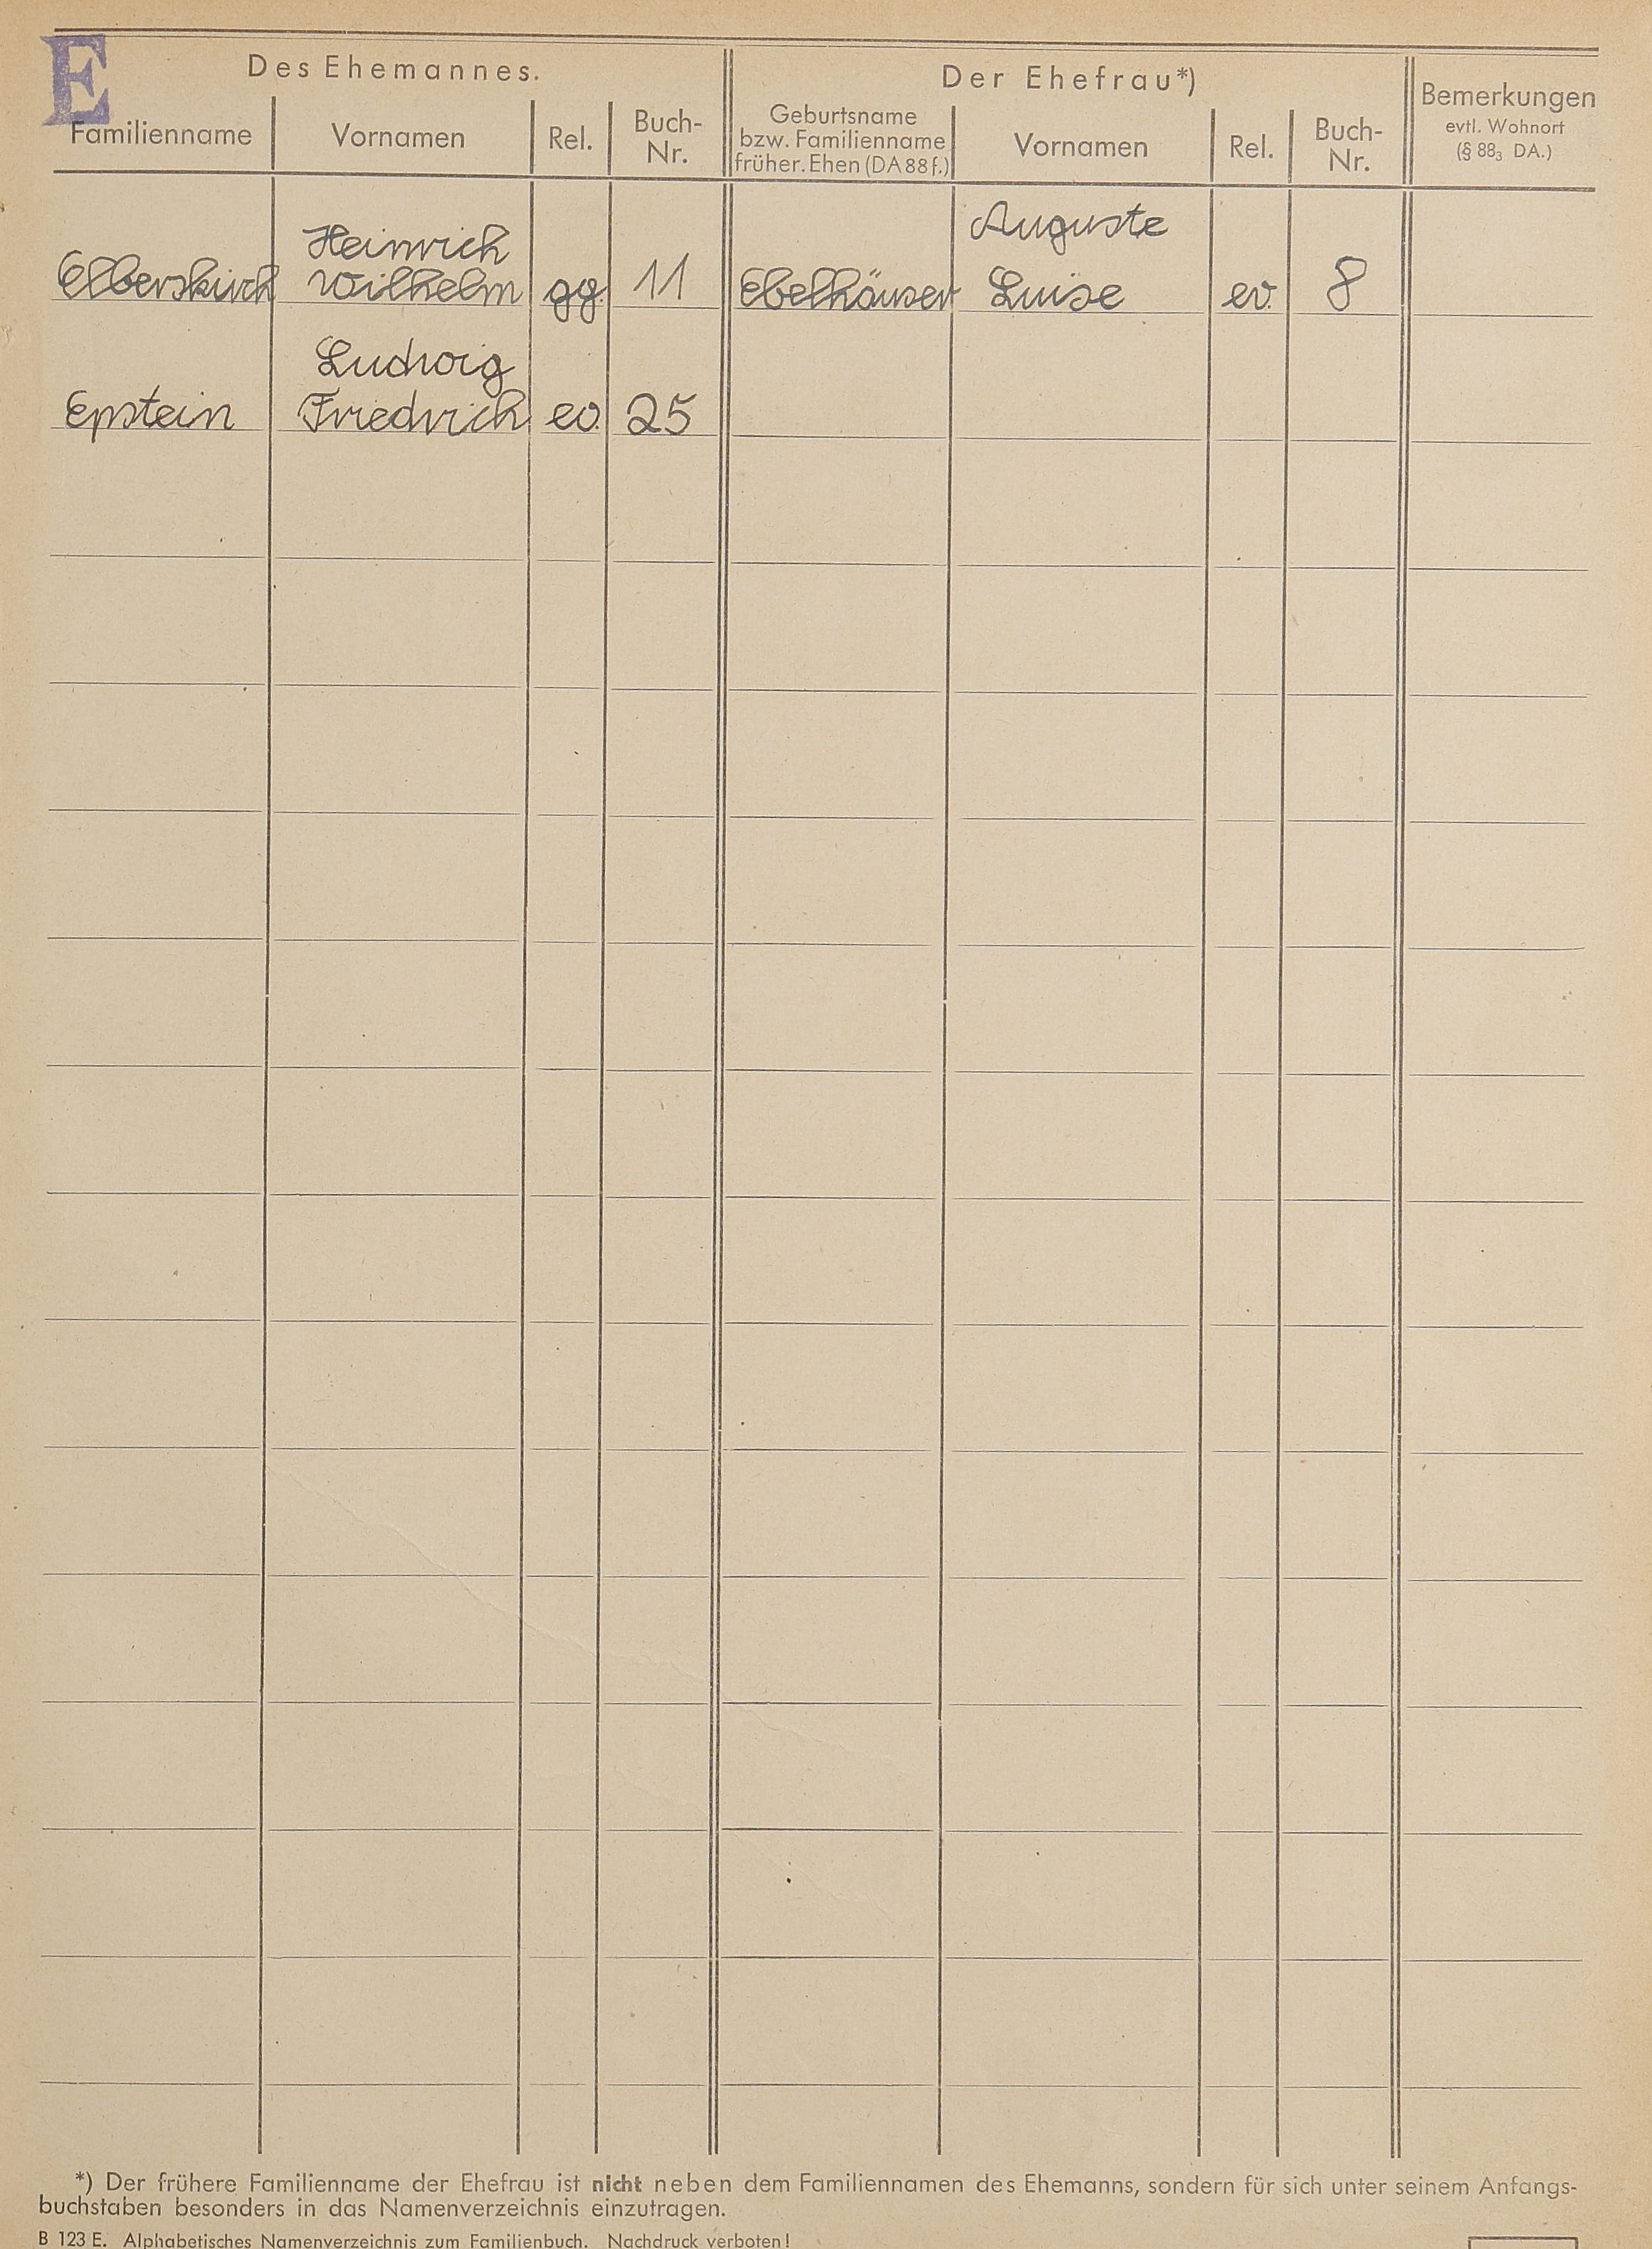 E
Des Ehemannes.
Der Ehefrau*)
Bemerkungen
evtl. Wohnort
(§ 88₃ DA.)
Familienname
Vornamen
Rel.
Buch-
Nr.
Geburtsname
bzw. Familienname
früher. Ehen (DA 88 f.)
Vornamen
Rel.
Buch-
Nr.
Elberskirch
Heinrich
Wilhelm
gg.
11
Ebelhäuser
Auguste
Luise
ev.
8
Epstein
Ludwig
Friedrich
ev.
25
*) Der frühere Familienname der Ehefrau ist nicht neben dem Familiennamen des Ehemanns, sondern für sich unter seinem Anfangs-
buchstaben besonders in das Namenverzeichnis einzutragen.
B 123 E. Alphabetisches Namenverzeichnis zum Familienbuch. Nachdruck verboten!